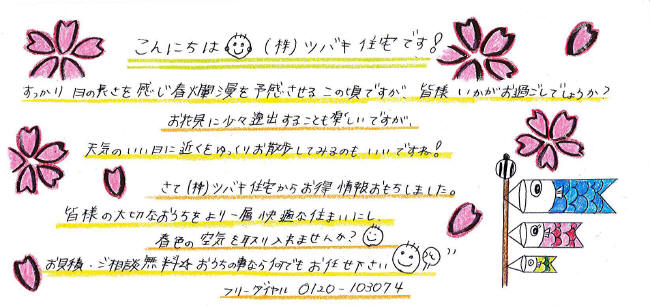 こんにちは (株)ツバキ住宅です!
すっかり 日の長さを感じ春爛漫を予感させる この頃ですが、皆様 いかがお過ごしでしょうか?
お花見に少々遠出することも楽しいですが、
天気のいい日に近くをゆっくりお散歩してみるのも いいですね!
さて (株)ツバキ住宅からお得情報おもちしました。
皆様の大切なおうちをより一層快適な住まいにし、
春色の空気を取り入れませんか?
お見積・ご相談無料☆おうちの事なら何でもお任せ下さい
フリーダイヤル 0120-103074